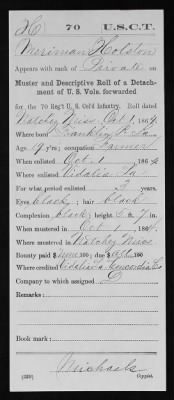 H 70 U.S.C.T.
Merriman Holston
Appears with rank of Private on
Muster and Descriptive Roll of a Detach-
ment of U. S. Vols. forwarded
for the 70 Reg't U. S. Col'd Infantry. Roll dated
Natchez Miss Oct 1, 1864
Where born Franklin
Age 19 y'rs; occupation Farmer
When enlisted Oct 1, 1864
Where enlisted Vidalia La
For what period enlisted 3 years.
Eyes black; hair black
Complexion black; height 5 ft. 7 in.
When mustered in Oct 1, 1864
Where mustered in Natchez Miss
Bounty paid $ 100; due $ 100
Where credited Vidalia Concordia
Company to which assigned
Remarks:
Book mark:
Michaels
(339) Copyist.